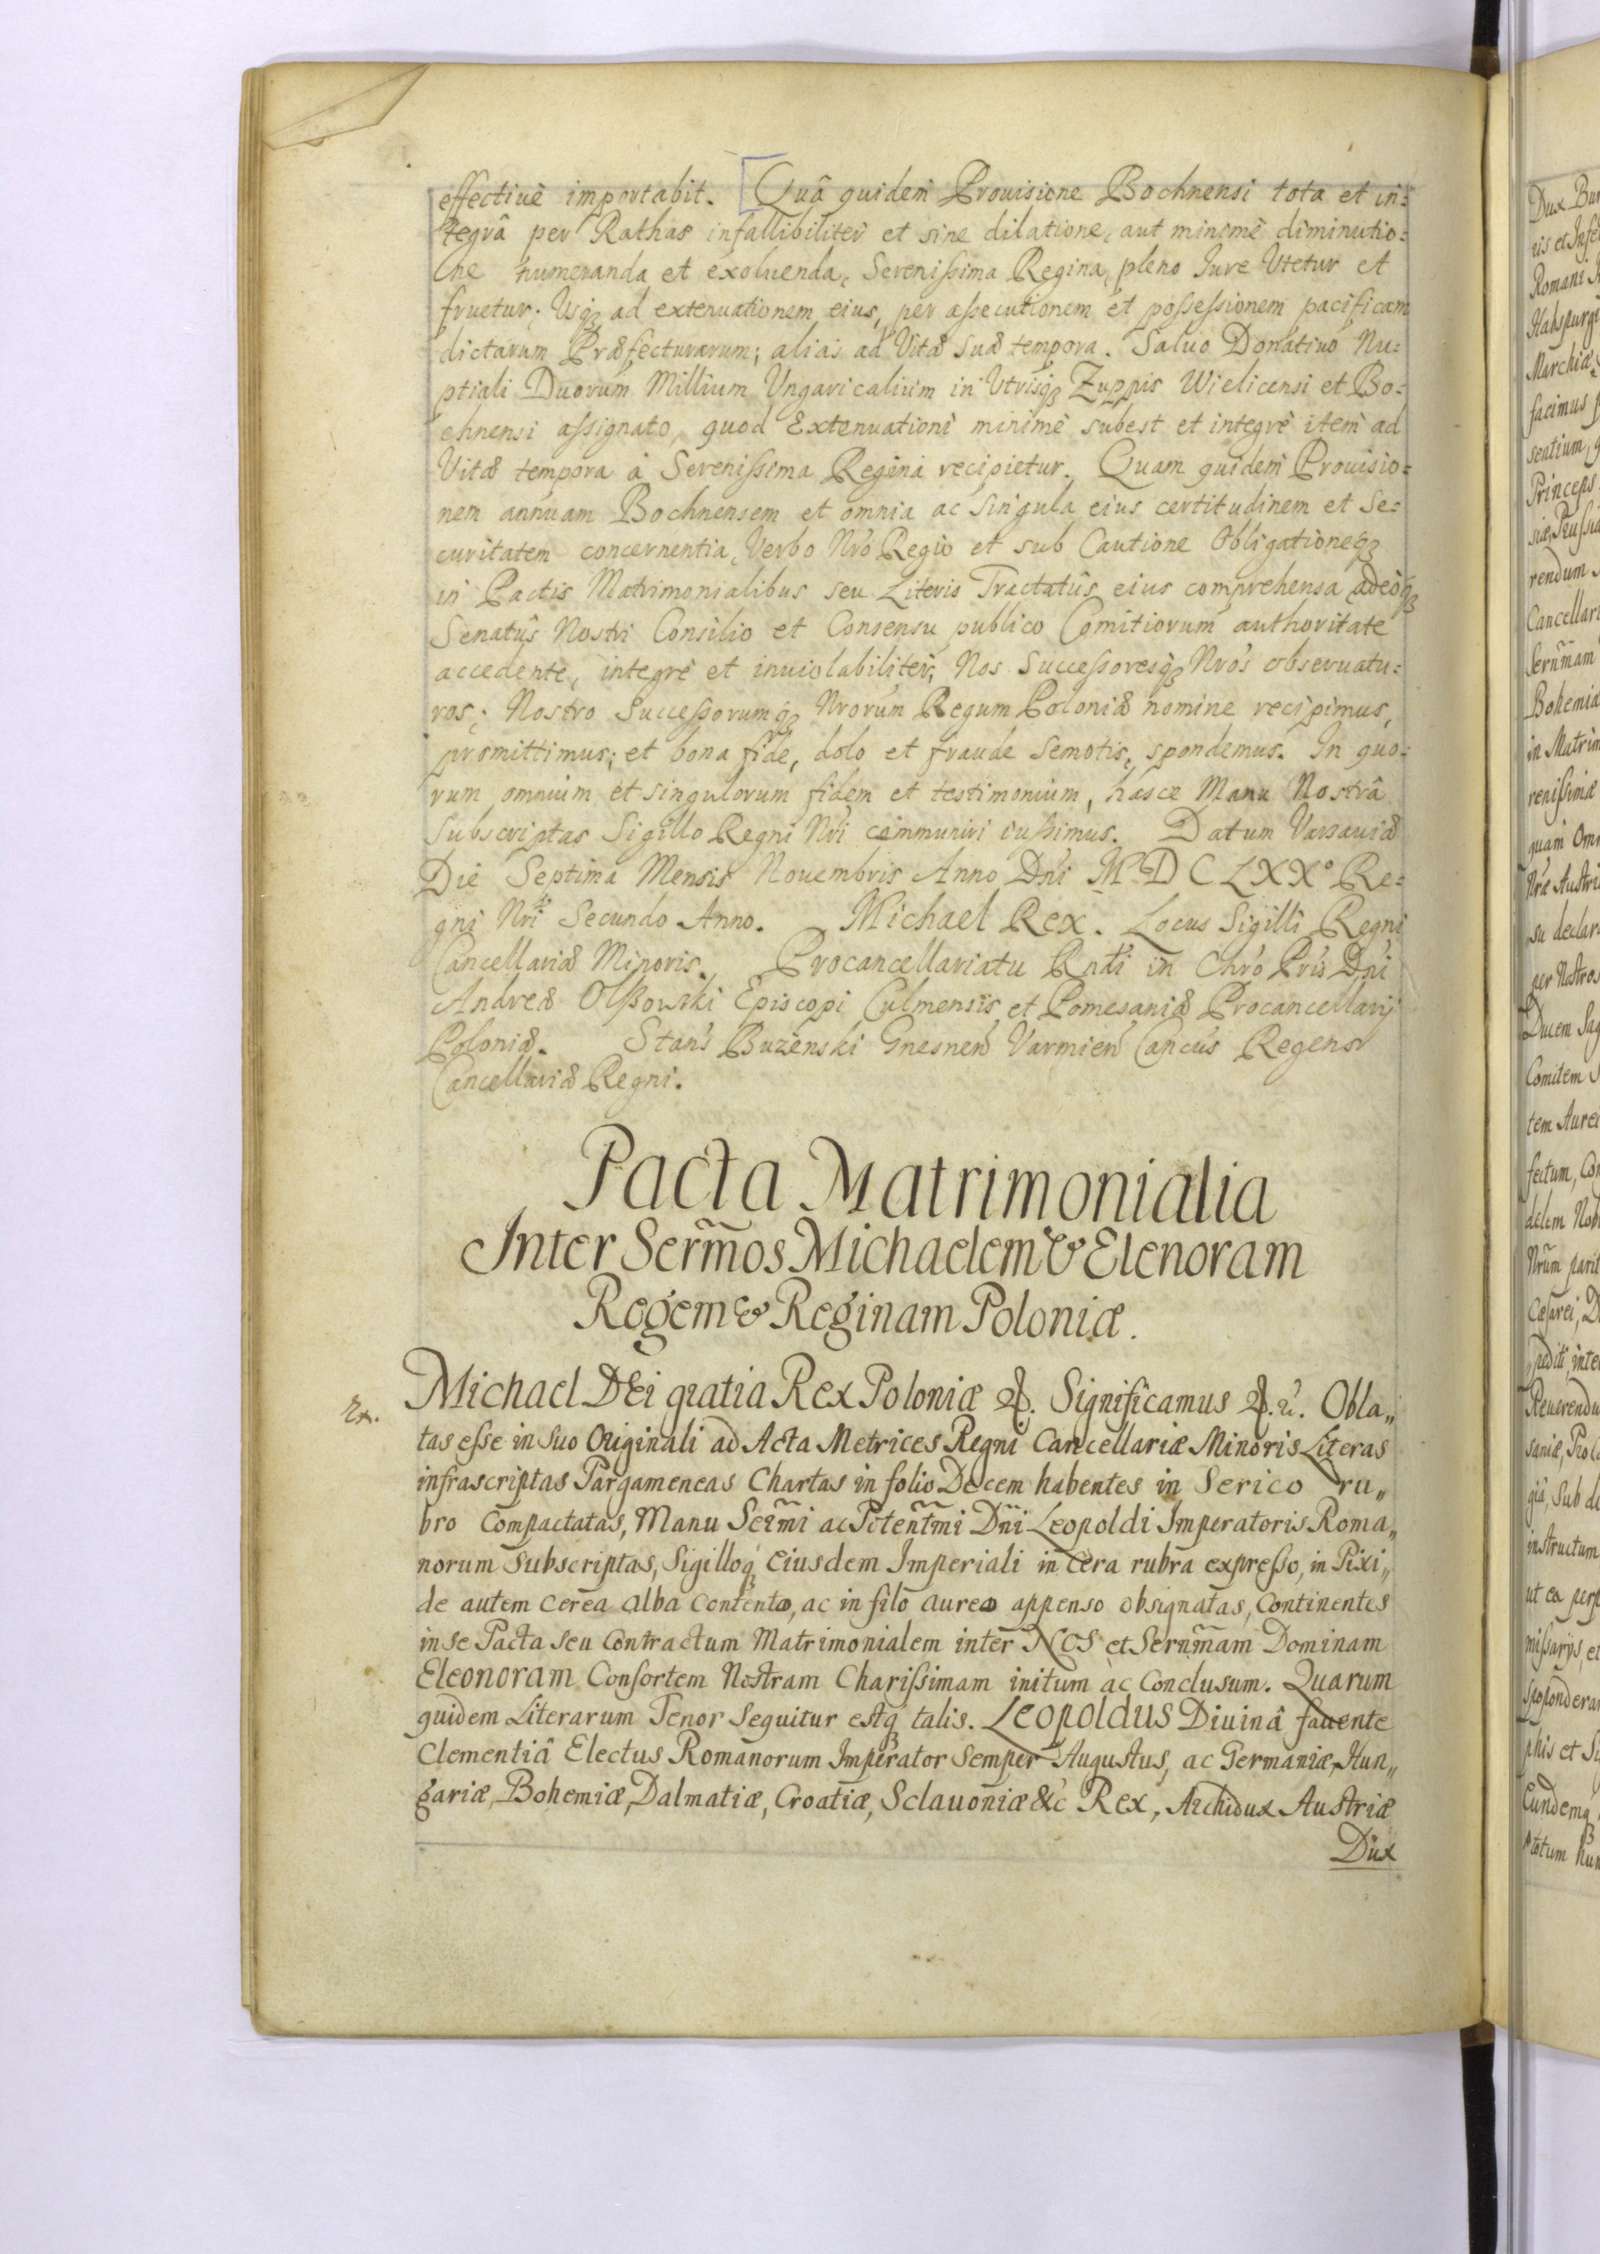 effectiuè importabit. Quâ quidem Prouisione Bochnensi tota et in:
tegrâ per Rathas infallibiliter et sine dilatione, aut minimè diminutio:
ne numeranda et exoluenda, Serenissima Regina, pleno Iure Vtetur et
fruetur. Usq3 ad extenuationem eius, per assecutionem et possessionem pacificam
dictarum Præfecturarum; alias ad Vitæ suæ tempora. Saluo Donatiuo Nu:
ptiali Duorum Millium Ungaricalium in Vtrisq3 Zuppis Wielicensi et Bo:
chnensi assignato, quod Extenuationi minimè subest et integrè item ad
Vitæ tempora à Serenissima Regina recipietur. Quam quidem Prouisio:
nem annuam Bochnensem et omnia ac singula eius certitudinem et se:
curitatem concernentia, Verbo Nro Regio et sub Cautione Obligationeq3
in Pactis Matrimonialibus seu Literis Tractatûs eius comprehensa adeoq3
Senatûs Nostri Consilio et Consensu publico Comitiorum authoritate
accedente, integrè et inuiolabiliter, Nos Successoresq3 Nros obseruatu:
ros; Nostro Successorumq3 Nrorum Regum Poloniæ nomine recipimus,
promittimus; et bona fide, dolo et fraude semotis, spondemus. In quo:
rum omnium et singulorum fidem et testimonium, hasce Manu Nostrâ
subscriptas Sigillo Regni Nri communiri iussimus. Datum Varsauiæ
Die Septima Mensis Nouembris Anno Dni MDCLXXo Re:
gni Nri Secundo Anno. Michael Rex. Locus Sigilli Regni
Cancellariæ Minoris. Procancellariatu Rndi in Chro Pris Dni
Andreæ Olszowski Episcopi Culmensis et Pomesaniæ Procancellarij
Poloniæ. Stans Buzenski Gnesnen Varmien Cancus Regens
Cancellariæ Regni.
Pacta Matrimonialia
Inter Sermos Michaelem & Elenoram
Regem & Reginam Poloniæ.
Michael DEi gratia Rex Poloniæ &. Significamus &. Obla„
tas esse in suo Originali ad Acta Metrices Regni Cancellariæ Minoris Literas
infrascriptas Pargameneas Chartas in folio Decem habentes in Serico ru„
bro Compactatas, Manu Sermi ac Potentmi Dni Leopoldi Imperatoris Roma„
norum subscriptas, Sigilloq3 Eiusdem Imperiali in cera rubra expresso, in Pixi„
de autem cerea alba contento, ac in filo aureo appenso obsignatas, Continentes
in se Pacta seu Contractum Matrimonialem inter NOS et Sernmam Dominam
Eleonoram Consortem Nostram Charissimam initum ac Conclusum. Quarum
quidem Literarum Tenor Sequitur estq3 talis. Leopoldus Diuinâ fauente
Clementiâ Electus Romanorum Imperator Semper Augustus, ac Germaniæ, Hun„
gariæ, Bohemiæ, Dalmatiæ, Croatiæ, Sclauoniæ &c Rex, Archidux Austriæ
Dux